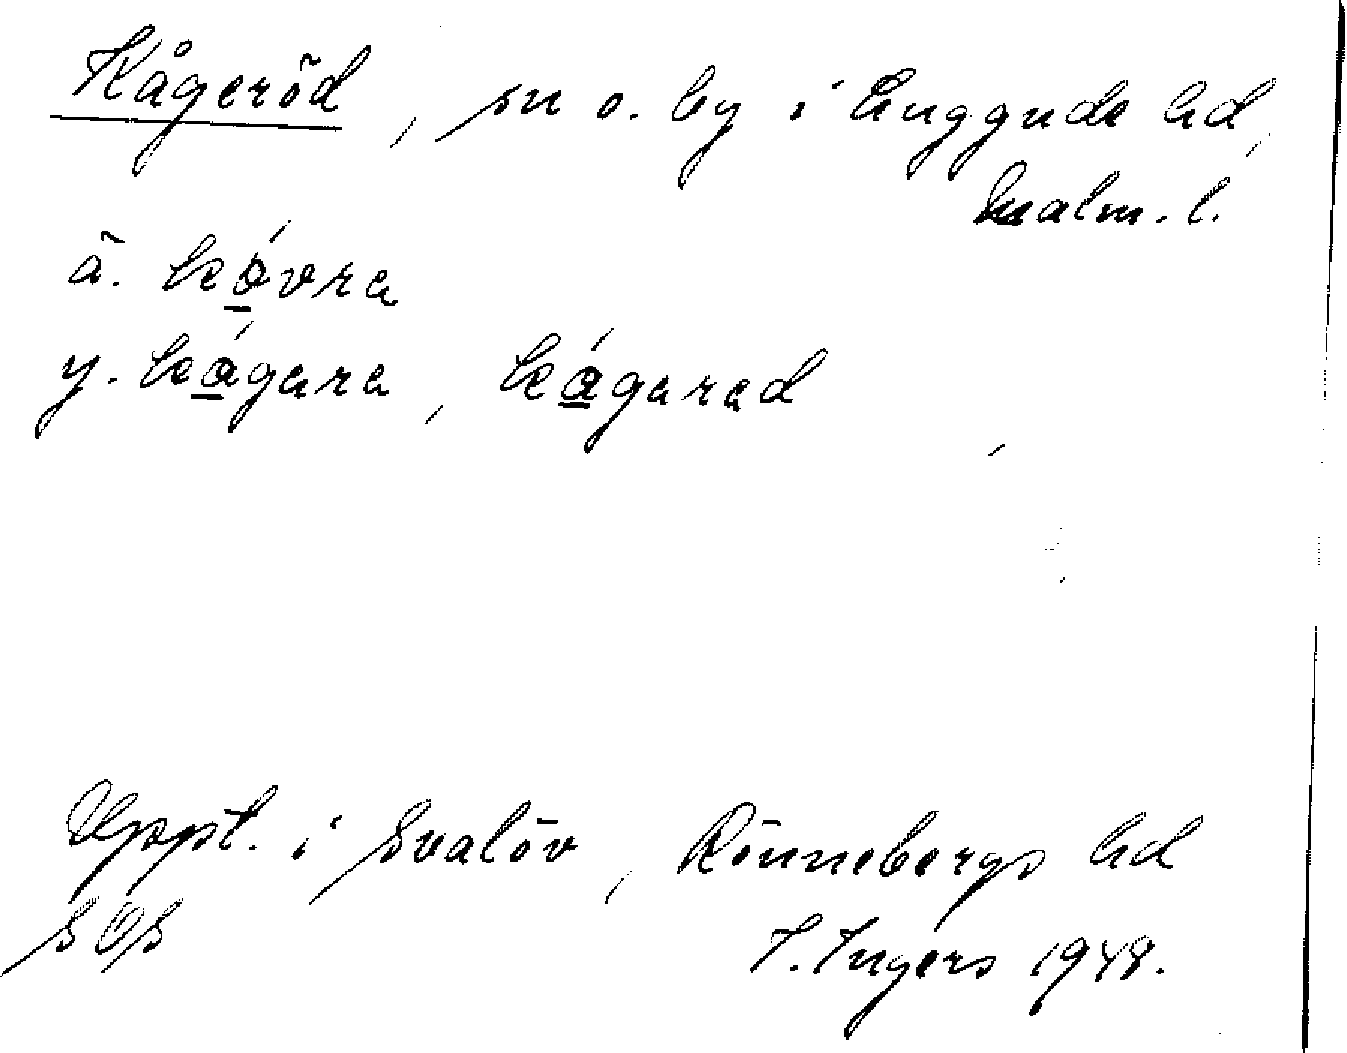 Kågeröd, sn o. by i Luggude hd,
Malm. l.
ä. kǻvra
y. kágara, kágarad
Uppt. i Svalöv, Rönnebergs hd
SOS
I. Ingers 1948.